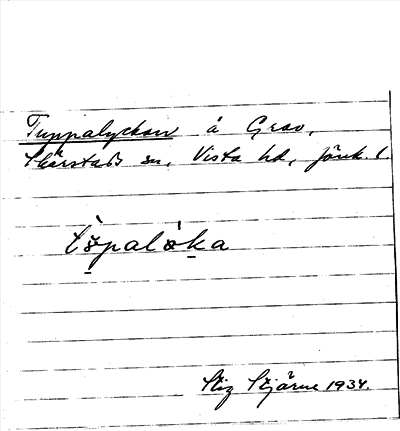 Tuppalyckan å Grav,
Skärstads sn, Vista hd, Jönk. l.
tòpalòka
Stig Stjärne 1934.